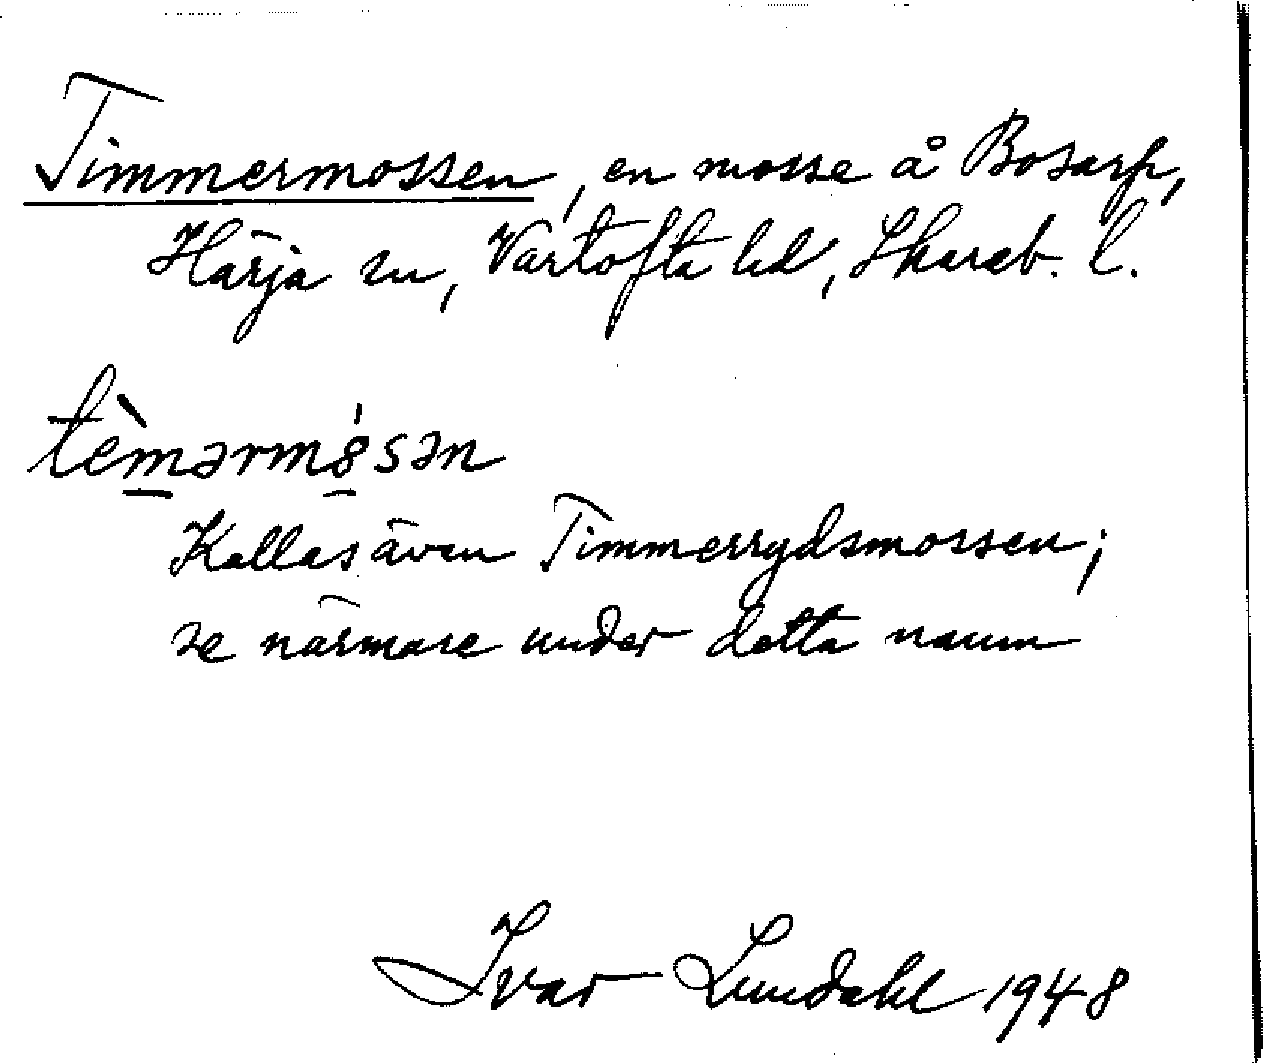 Timmermossen, en mosse å Bosarp,
Härja sn, Vartofta hd, Skarab. l.
tèmərm8́sən
Kallas även Timmerrydsmossen;
se närmare under detta namn
Ivar Lundahl 1948